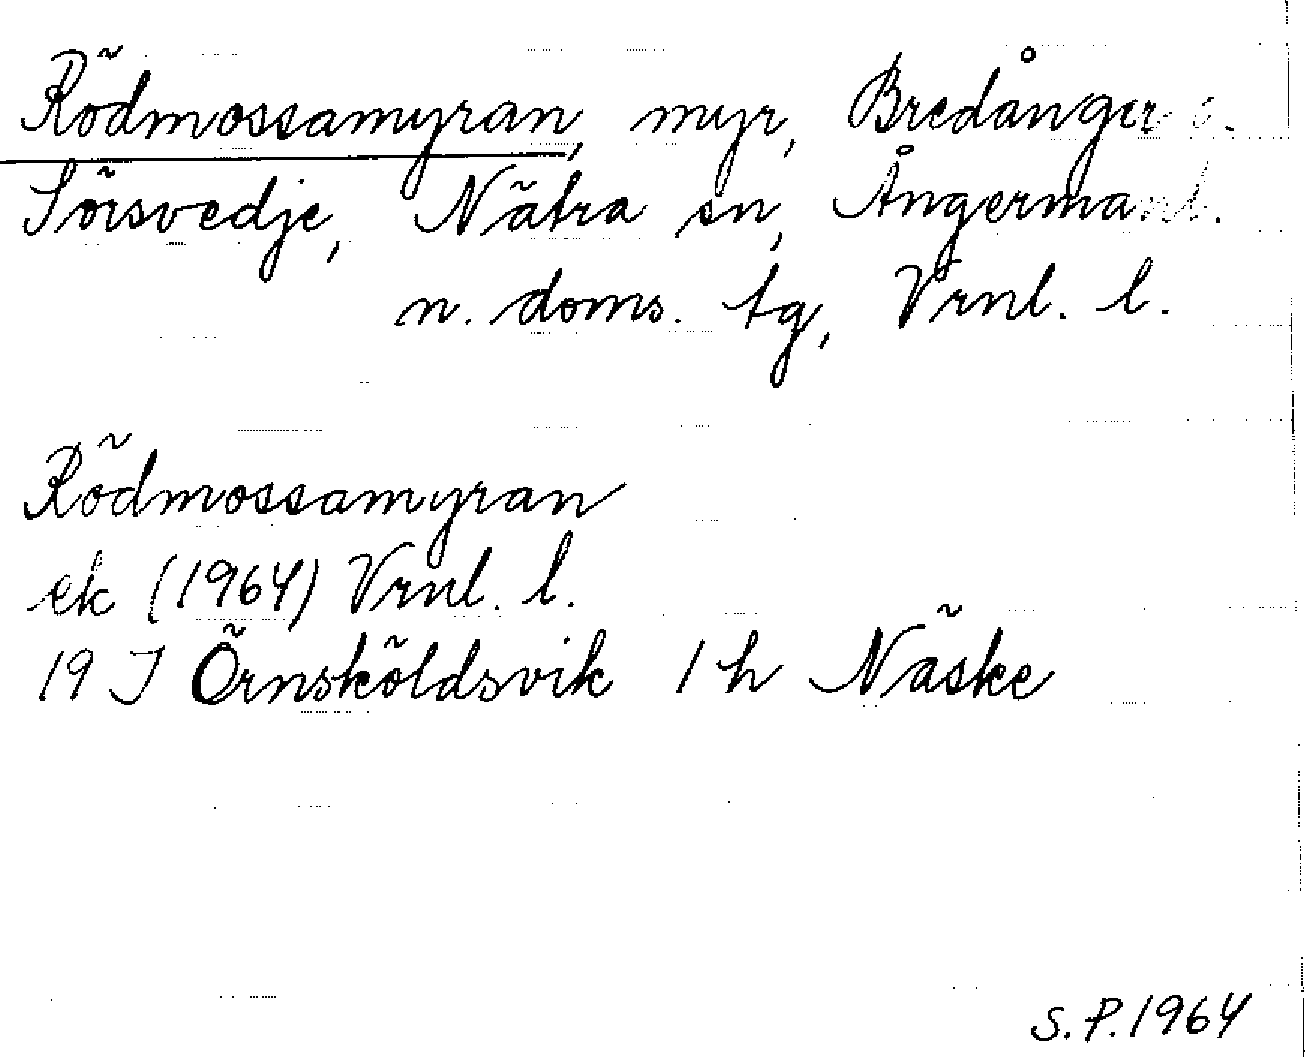 Rödmossamyran, myr, Bredånger o.
Sörsvedje, Nätra sn, Ångermanl.
n. doms. tg, Vrnl. l.
Rödmossamyran
ek (1964) Vrnl. l.
19 J Örnsköldsvik 1 h Näske
S.P. 1964